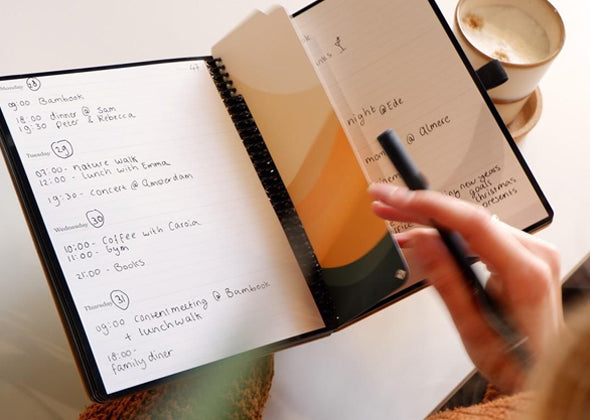 47
Monday 28
09:00 Bambook
18:00 dinner @ Sam
19:30 Peter & Rebecca
Tuesday 29
07:00 - nature walk
12:00 - lunch with Emma
19:30 - concert @ Amsterdam
Wednesday 30
10:00 - Coffee with Carola
11:00 - Gym
21:00 - Books
Thursday 31
09:00 conven/meeting @ Bambook
+ lunchwalk
18:00 -
family diner
night @Ede
@ Almere
new years
goals
christmas
presents